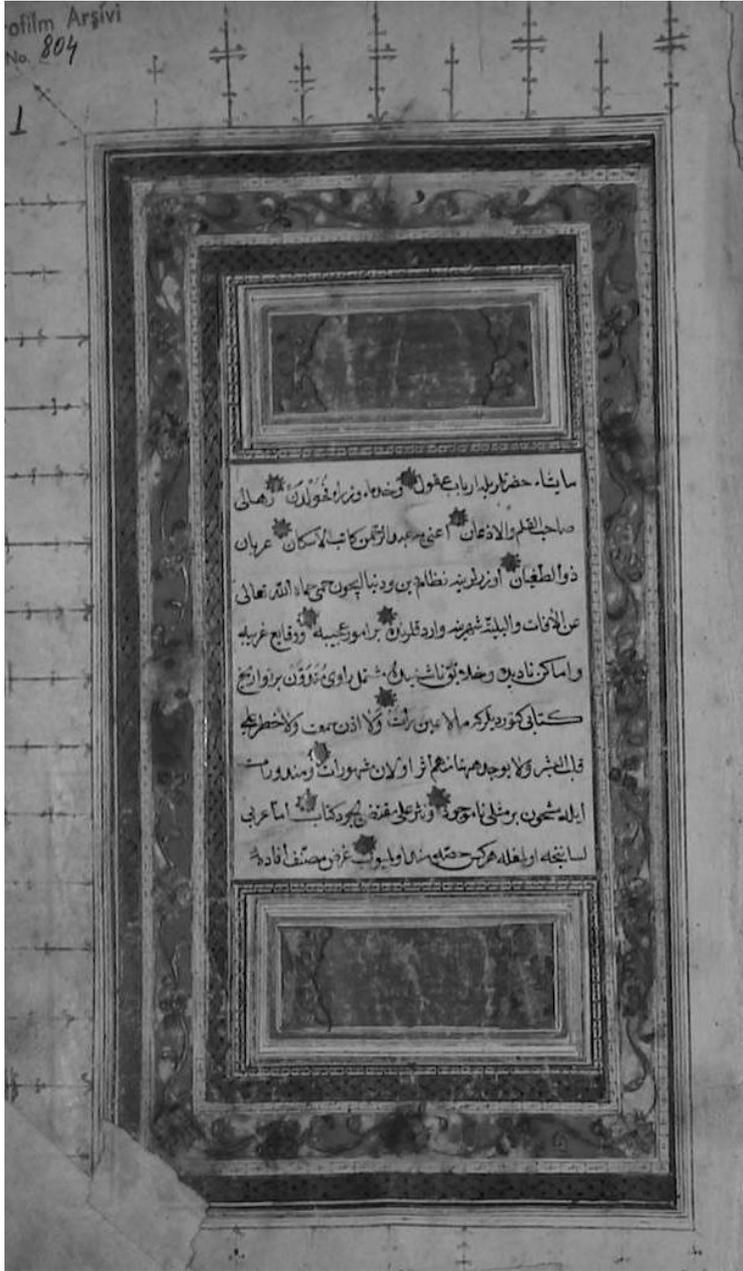 ofilm Arşivi
No. 804
1
ما يشاء حضرتلريله ارباب عقول وخدماء وزراء فحولدن
صاحب القلم والاذعان اعنى عبد الرحمن كاتب الاسكان عربان
ذو الطغيان اوزرلرينه نظام دين ودنيا ايچون حماه الله تعالى
عن الآفات والبليّة شهرينه وارد قلرنده بر امور عجيبه ووقايع غريبه
واماكن ناديده وخلايق ناشنيده مشتمل راوى بر تواريخ
كتابى كتورديلر كه ما لا عين رأت ولا اذن سمعت ولا خطر على
قلب البشر ولا يوجد همنامنهم اثر اولان مشهورات ومندورات
ايله مشحون بر مثلى ناموجود ونثر على كتاب اما عربى
لسانجه اولمغله هركس حصه مند اوليوب غرض مصنف افاده